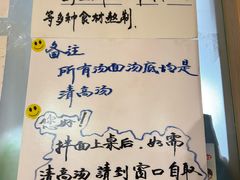 等多种食材熬制.
备注
所有汤面汤底均是
清高汤
您好!
拌面上桌后.如需
清高汤請到窗口自取